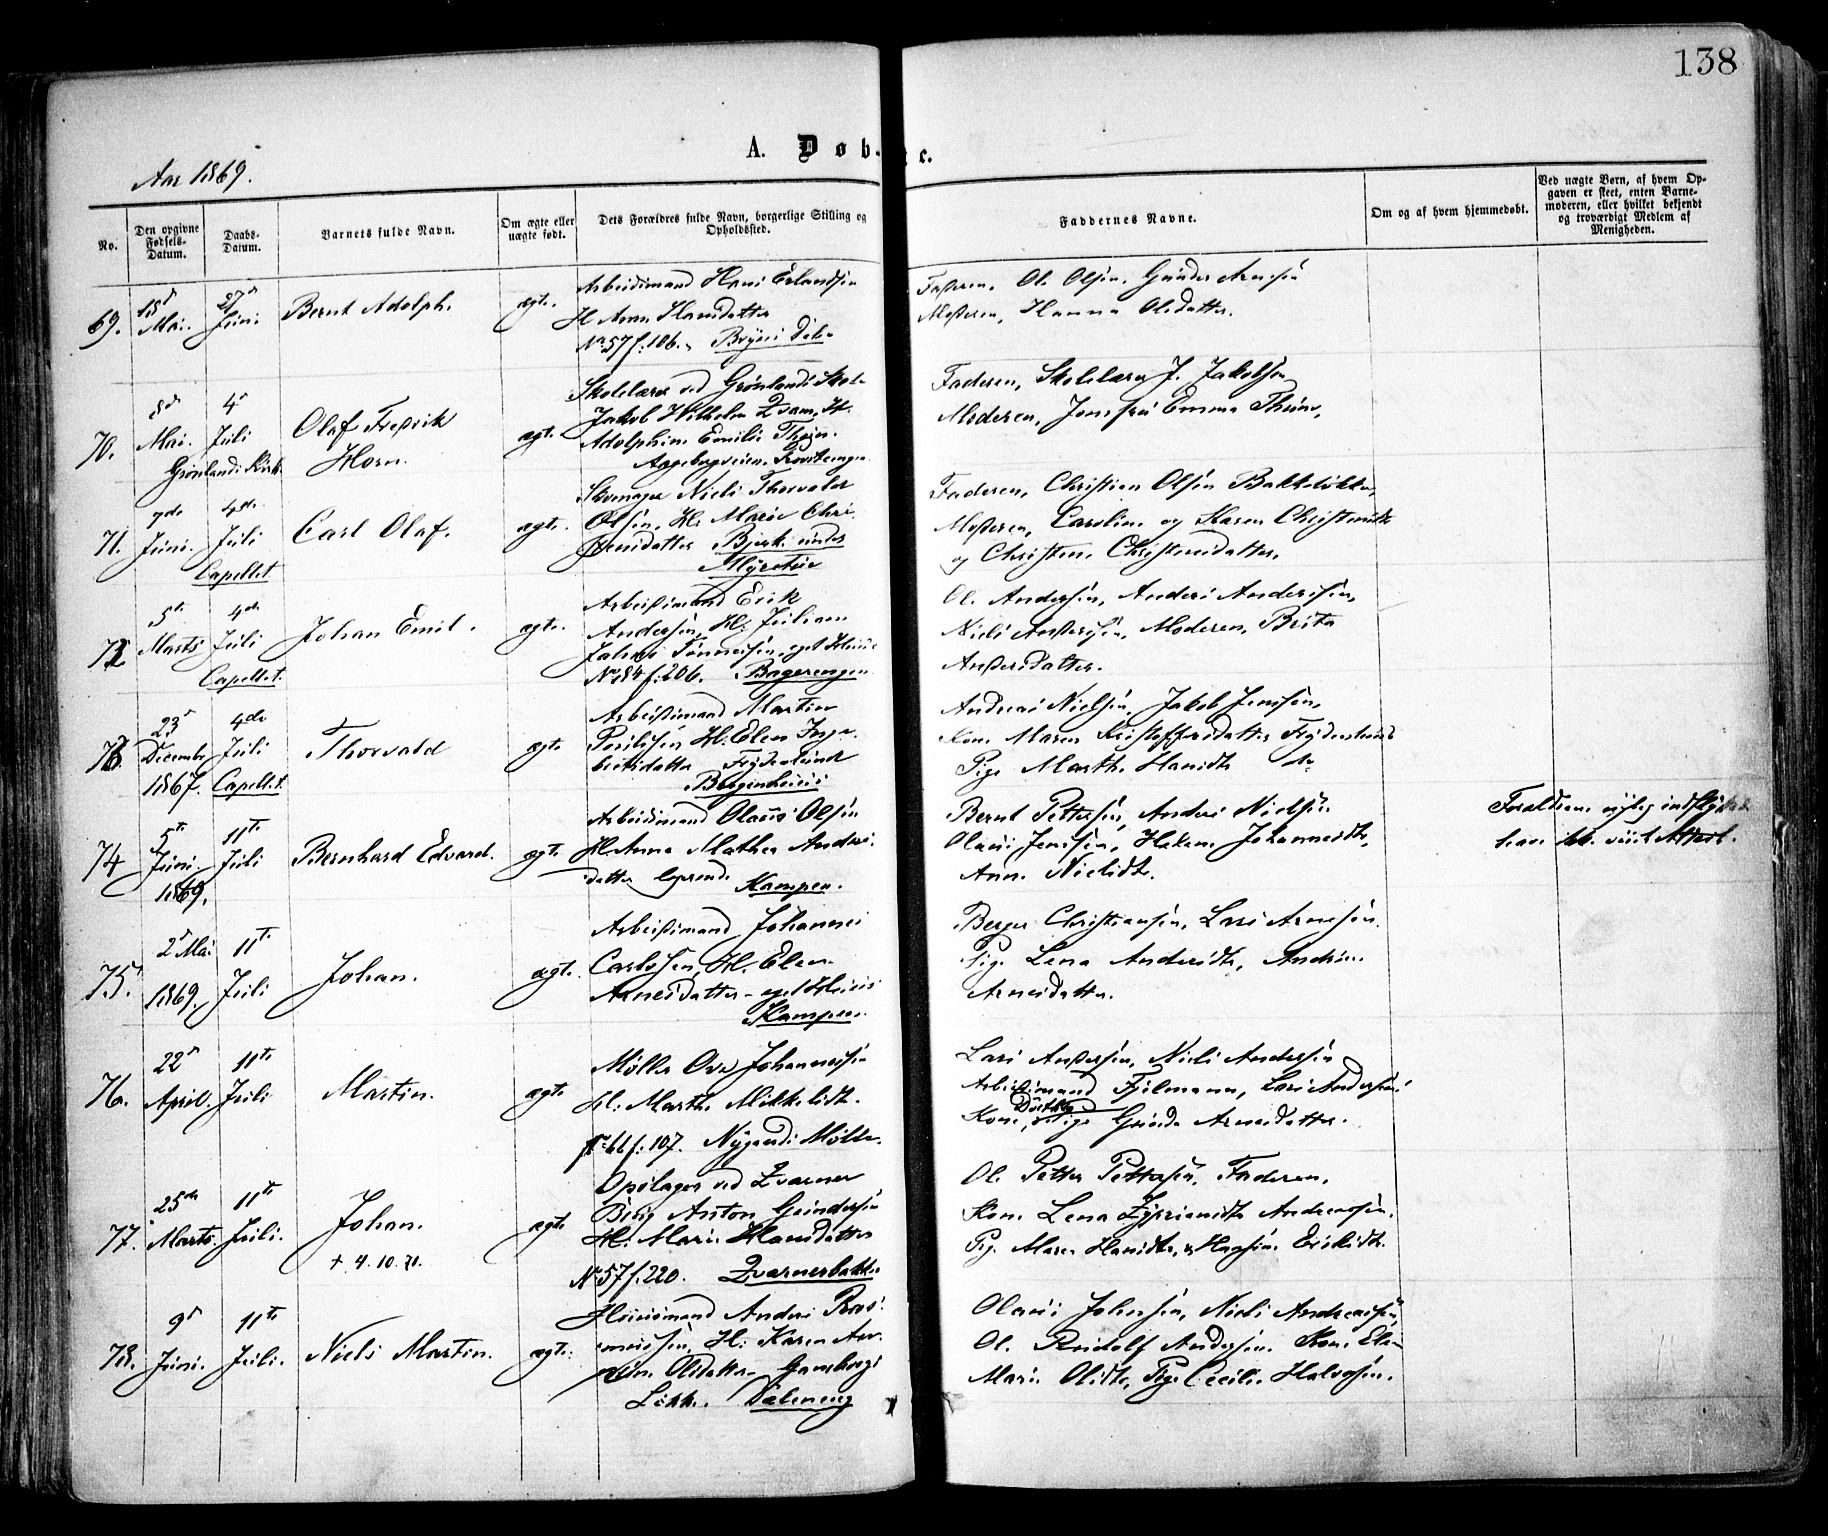 138
A. Døb- e.
Aar 1869.
No.
Den opgivne Fødsels-Datum.
Daabs-Datum.
Barnets fulde Navn.
Om ægte eller uægte født.
Dets Forældres fulde Navn, borgerlige Stilling og Opholdssted.
Faddernes Navne.
Om og af hvem hjemmedøbt.
Ved uægte Børn, af hvem Opgaven er skeet, enten Barnemoderen, eller hvilket bekjendt og troværdigt Medlem af Menigheden.
69.
18d Mai.
27d Juni.
Bernt Adolph.
ægte.
Arbeidsmand Hans Erlandsen
H Anne Hansdatter
No 57 f: 186.
Faderen, Ole Olsen, Gunder Arnesen
Moderen, Hanna Olsdatter.
70.
8de Mai.
4de Juli
Grønlands Kirke
Olaf Fredrik
Horn.
ægte.
Skolelærer ved Grønlands Skole
Jakob Wilhelm Qvam, H.
Adolphine Emilie
Aagebergveien.
Faderen, Skolelærer J. Jakobsen
Moderen, Jomfru Emma
71.
7de Juni.
4de Juli
Capellet
Carl Olaf.
ægte.
Skomager Niels Thorvald
Olsen, H: Marie Chri-
stensdatter Bjerke under
Faderen, Christian Olsen Bakkeløkken,
Moderen, Caroline og Karen Christensdtr
og Christine Christensdatter.
72
5te Marts
4de Juli
Capellet.
Johan Emil.
ægte.
Arbeidsmand Erik
Andersen, H: Juliane
eget Huus
No 184 f: 206. Bagerengen
Ole Andersen, Anders Andersen,
Niels Andersen, Moderen, Brita
Andersdatter.
73.
23d December 1867.
4de Juli
Capellet.
Thorvald
ægte
Arbeidsmand Martin
Poulsen H. Elen Inge-
Frydenlund
Andreas Nielsen, Jakob Jensen,
Kone Maren Kristoffersdatter Frydenlund
Pige Marthe Hansdtr do
74
5te Juni. 1869.
11te Juli
Bernhard Edvard.
ægte
Arbeidsmand Olaus Olsen
H. Anna Mathea Anders-
datter
Kampen.
Bernt Pettersen, Anders Nielsen
Olaus Jensen, Helene Johannesdtr,
Anne Nielsdtr.
Forældrene nylig indflyttede
have ikke viist Attest.
75.
2d Mai 1869.
11te Juli
Johan.
ægte.
Arbeidsmand Johannes
Carlssen, H. Elen
Arnesdatter - eget Huus
Kampen.
Berger Christiansen, Lars Arnesen.
Pige Lena Andersdtr, Andrine
Arnesdatter.
76.
22d April.
11te Juli
Martin.
ægte
Møller Ove Johannessen
H: Marthe Mikkelsdtr.
No 66 f: 107. Nygaards Mølle.
Lars Andersen, Niels Andersen
Arbeidsmand Fjelmann, Lars Andersens
Kone Dorthe, Pige Gunda Arnesdatter.
77.
25de Marts.
11te Juli.
Johan.
+ 4.10.71.
ægte
Opslager ved Qværner
Brug Anton Gundersen
H: Marie Hansdatter
No 57 f. 220. Qværnerbakken
Ole Petter Pettersen, Faderen,
Kone Lena Zypriansdtr Andreassen,
Pige Maren Hansdtr, Ericksdtr.
78.
9d Juni.
11te Juli.
Niels Martin.
ægte:
Huusmand Anders Ras-
mussen, H: Karen
Olsdatter
Løkke. Vaalereng
Olaus Johnsen, Niels Andreassen,
Ole Rudolf Andersen. Kone Elen
Marie Olsdtr, Pige Cecilie Halvorsen.